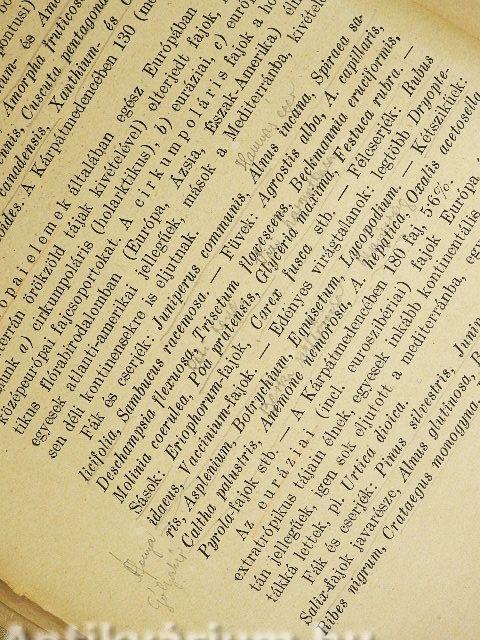 pontusi)
um- és Am
Amorpha fruticos
ennis, Cuscuta pentagona
canadensis, Xanthium-
oides. A Kárpátmedencében 130 (me
elemek általában egész Európában
terán örökzöld tájak kirételével) elterjedt fajok,
a) cirkumpoláris (holarktikus), b) euráziai, c) euró
középeurópai fajcsoportókat. A cirkumpoláris fajok a ho
tikus flórabirodalomban (Európa, Ázsia, Észak-Amerika) éln
egyesek atlanti-amerikai jellegűek, mások a Mediterránba, kivétel
sen déli kontinensekre is eljutnak.
Fák és cserjék: Juniperus communis, Alnus incana, Spiraea sa-
licifolia, Sambucus racemosa. — Füvek: Agrostis alba, A. capillaris,
Deschampsia flexuosa, Trisetum flavescens, Beckmannia eruciformis,
Molinia coerulea, Poa pratensis, Glyceria maxima, Festuca rubra. —
Sások: Eriophorum-fajok, Carex fusca stb. — Félcserjék: Rubus
idaeus, Vaccinium-fajok. — Edényes virágtalanok: legtöbb Dryopte-
ris, Asplenium, Botrychium, Equisetum, Lycopodium. — Kétszikűek:
Caltha palustris, Anemone nemorosa, A. hepatica, Oxalis acetosella
Pyrola-fajok stb. — A Kárpátmedencében 180 faj, 56%.
Az euráziai (incl. euroszibériai) fajok Európa
extratrópikus tájain élnek, egyesek inkább kontinentális
tán jellegűek, igen sok eljutott a mediterránba, egy
tákká lettek, pl. Urtica dioica.
Fák és cserjék: Pinus silvestris, Junip
Salix-fajok javarésze, Alnus glutinosa, B
Ribes nigrum, Crataegus monogyna,